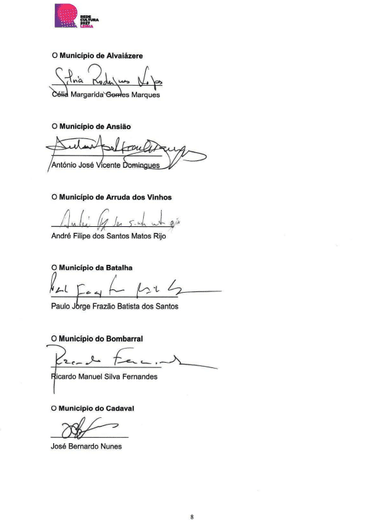 REDE
CULTURA
2027
LEIRIA
O Município de Alvaiázere
Célia Margarida Gomes Marques
O Município de Ansião
António José Vicente Domingues
O Município de Arruda dos Vinhos
André Filipe dos Santos Matos Rijo
O Município da Batalha
Paulo Jorge Frazão Batista dos Santos
O Município do Bombarral
Ricardo Manuel Silva Fernandes
O Município do Cadaval
José Bernardo Nunes
8